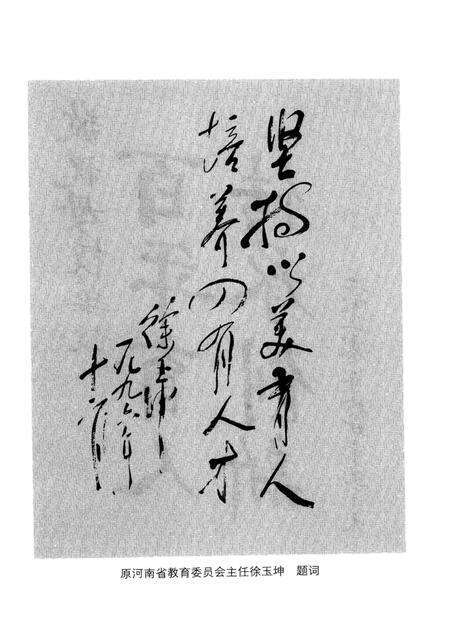 坚持以美育人
培养四有人才
徐玉坤
一九九六年
十月
原河南省教育委员会主任徐玉坤 题词